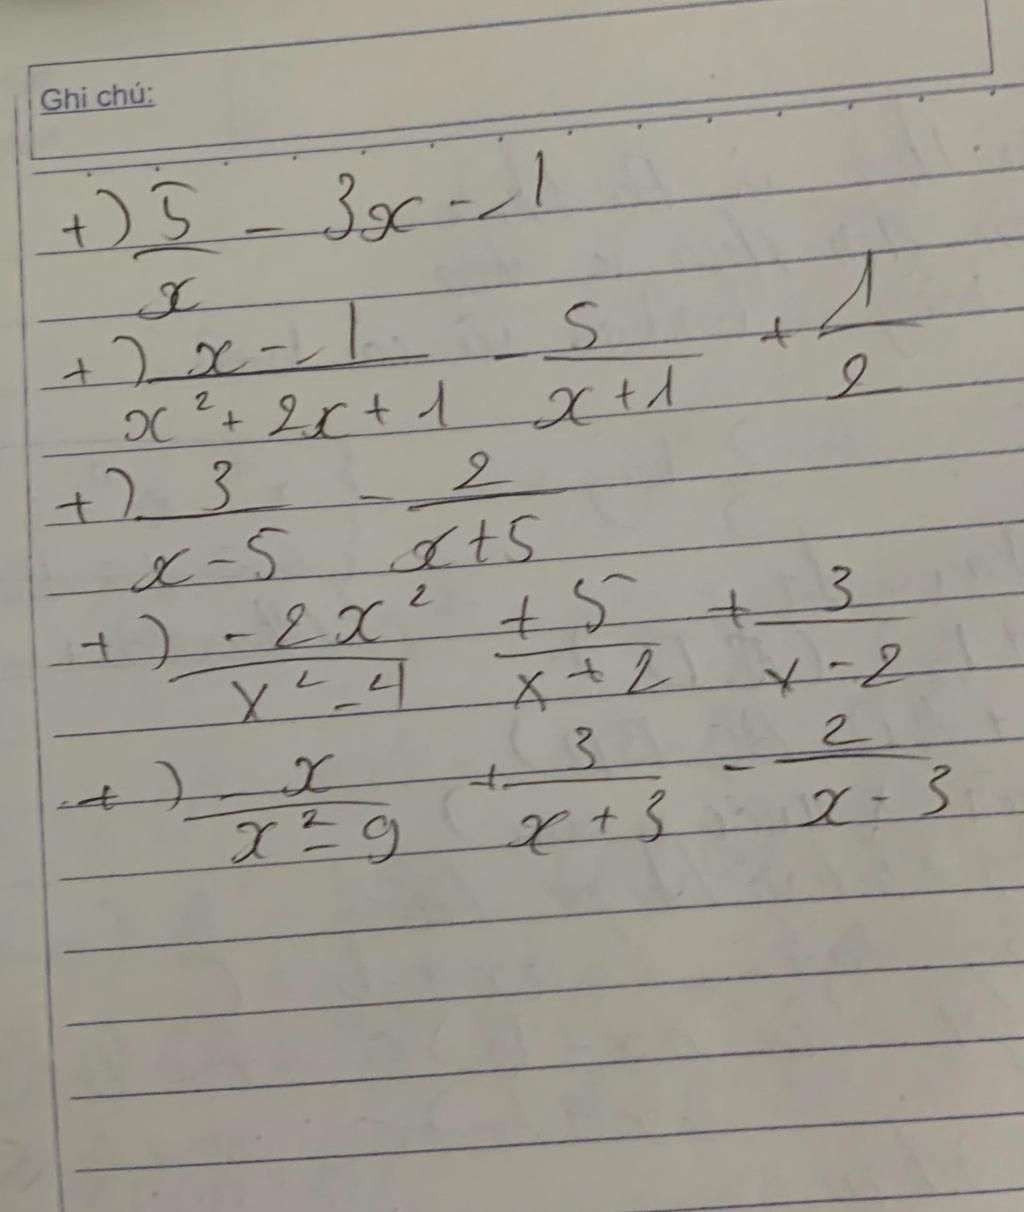 Ghi chú:
+) 5/x - 3x - 1
+) (x - 1)/(x² + 2x + 1) - 5/(x + 1) + 1/2
+) 3/(x - 5) - 2/(x + 5)
+) -2x²/(x² - 4) + 5/(x + 2) + 3/(x - 2)
+) x/(x² - 9) + 3/(x + 3) - 2/(x - 3)